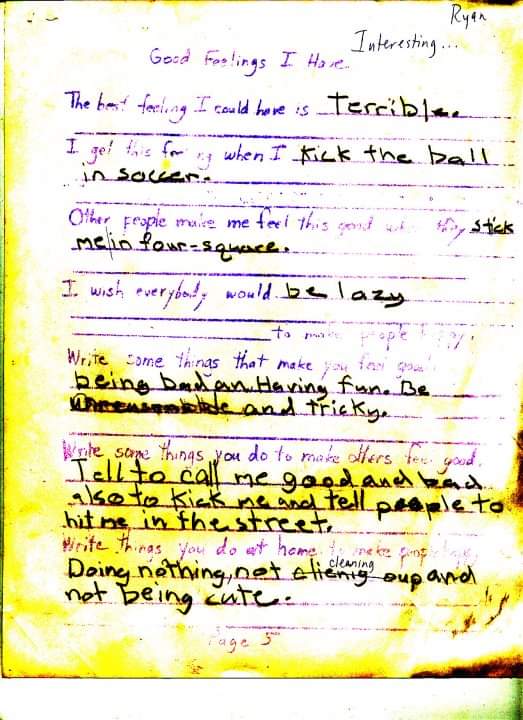 Ryan
Interesting...
Good Feelings I Have
The best feeling I could have is Terrible.
I get this when I Kick the ball
in soccer.
Other people make me feel this good stick
me in four-square.
I wish everybody would be lazy
to make people
Write some things that make you feel good.
being bad an Having fun. Be
and Tricky.
Write some things you do to make others feel good.
Tell to call me good and bad
also to Kick me and tell people to
hit me in the street.
Write things you do at home to make people
cleaning
Doing nothing, not oup and
not being cute.
Page 5